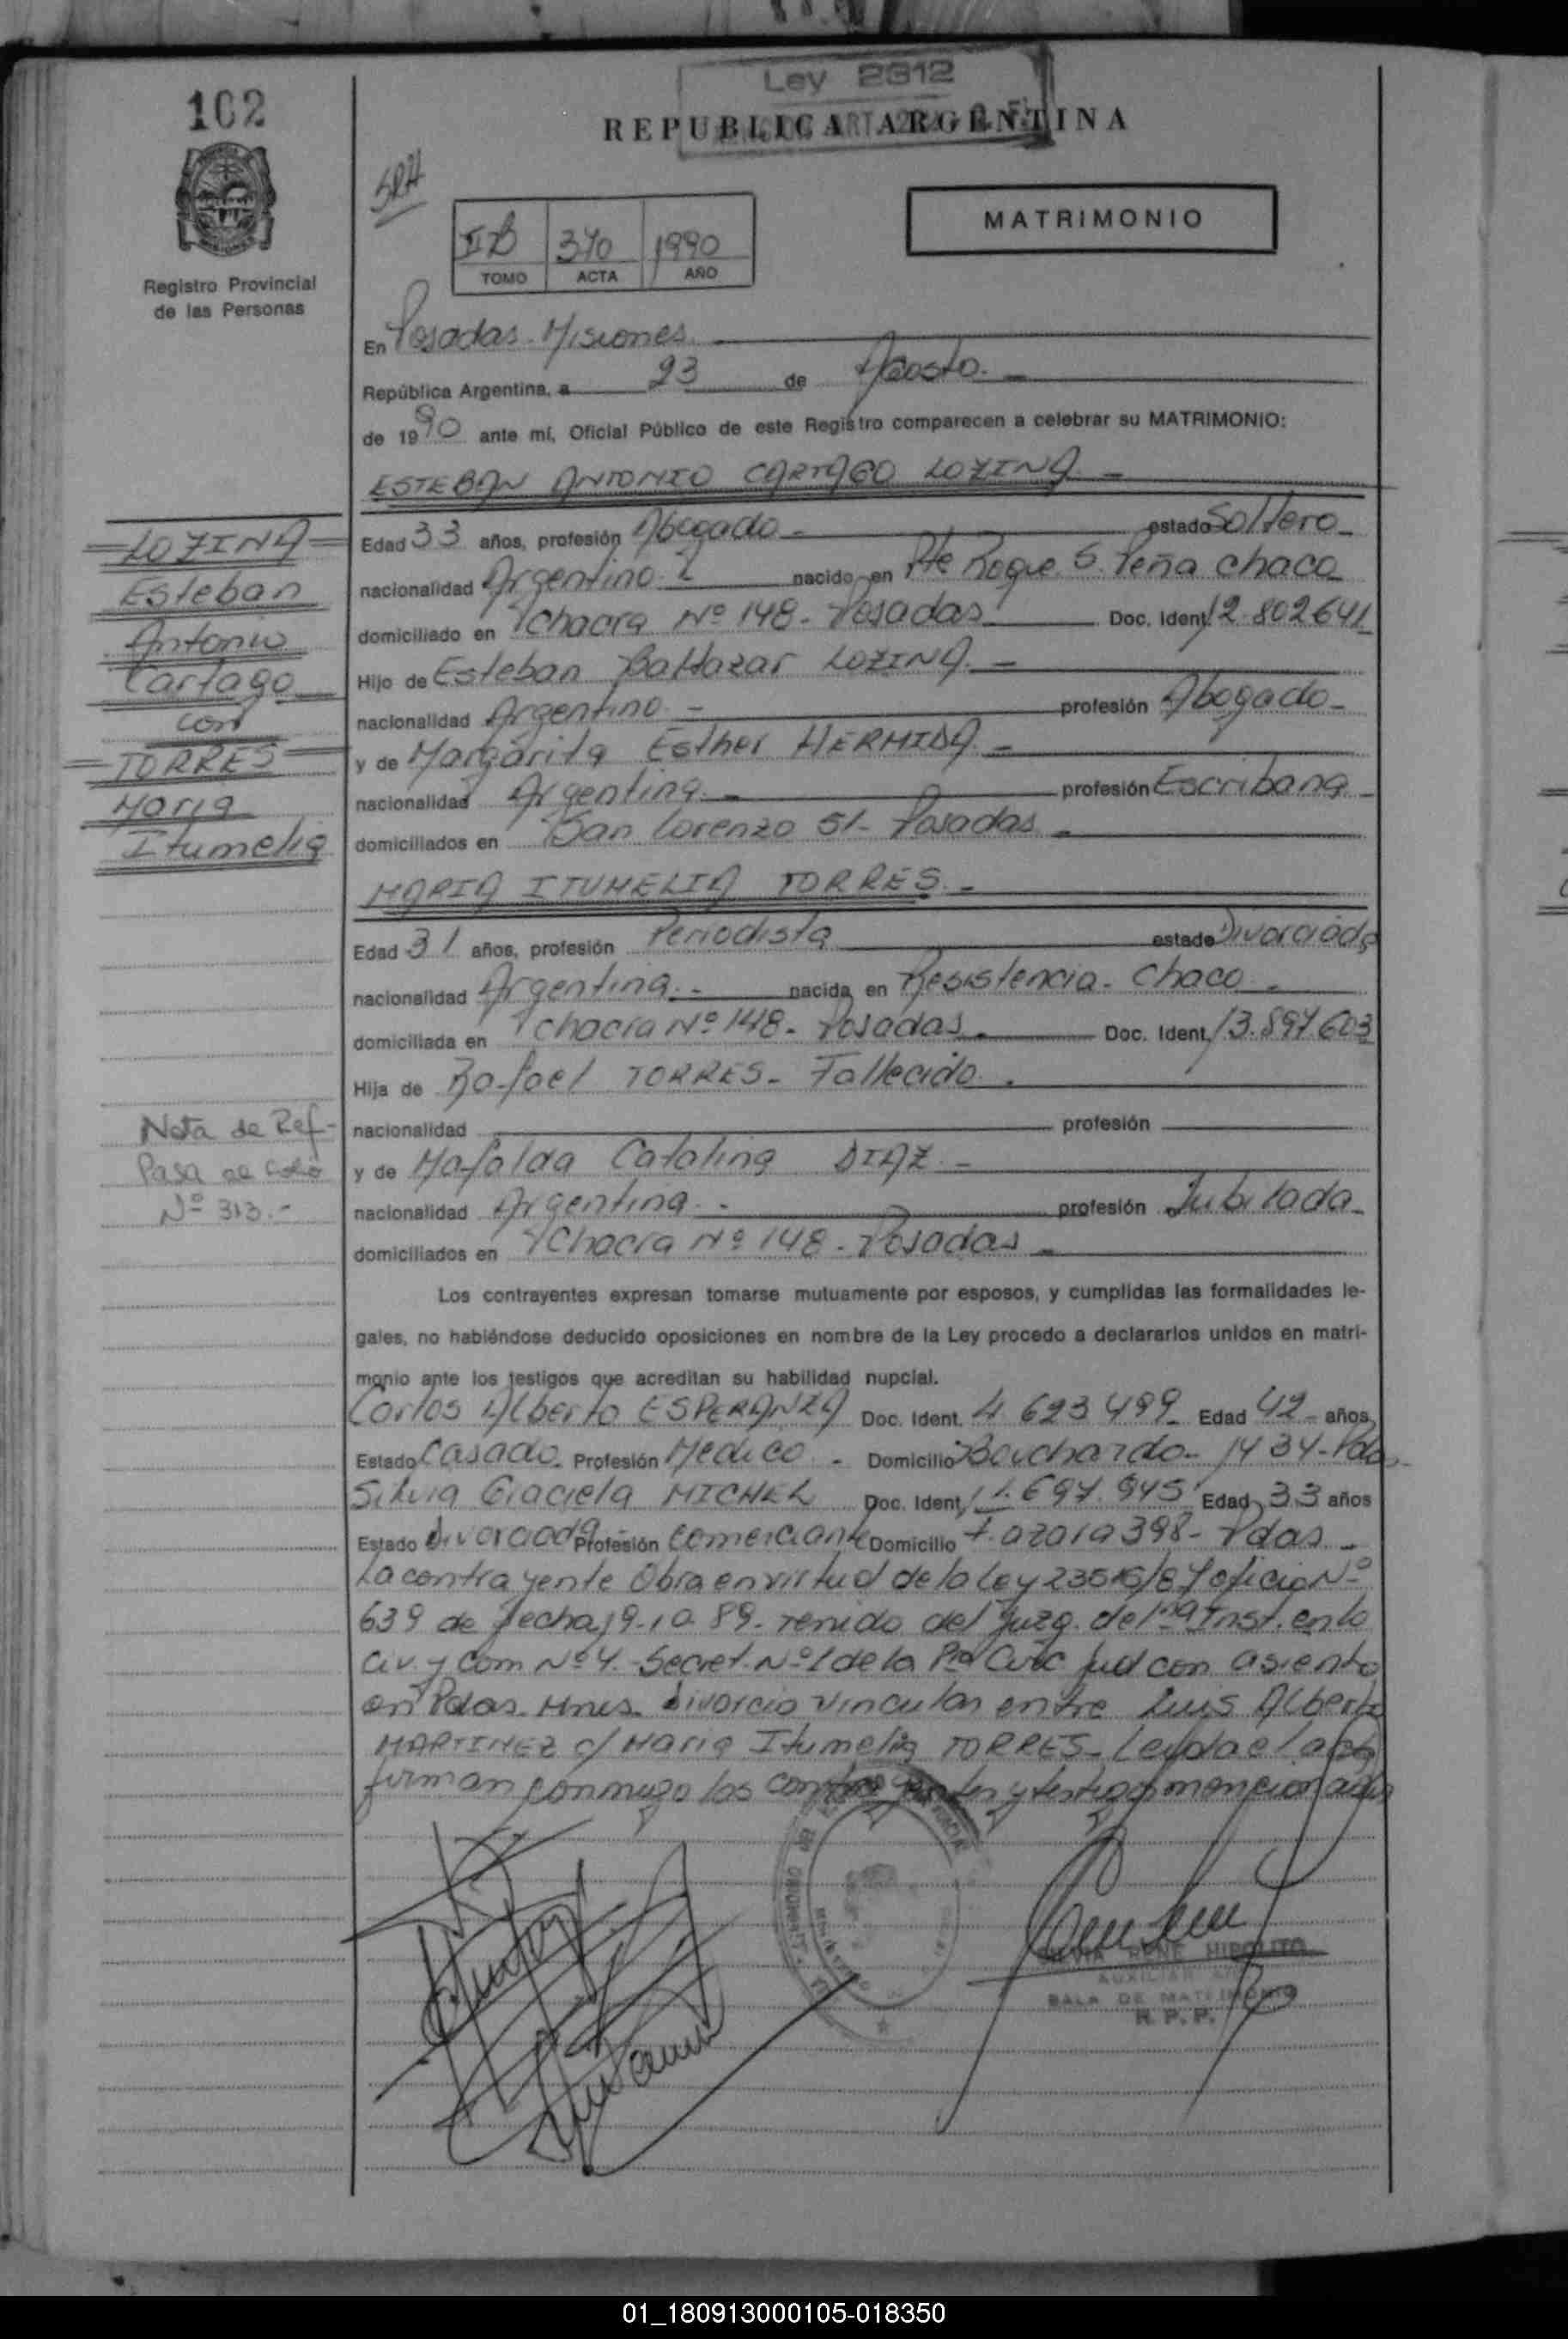 102
Ley 2312
REPUBLICA ARGENTINA
MATRIMONIO
IIB 370 1990
TOMO ACTA AÑO
Registro Provincial
de las Personas
En Posadas - Misiones
República Argentina, a 23 de Agosto. -
de 1990 ante mí, Oficial Público de este Registro comparecen a celebrar su MATRIMONIO:
ESTEBAN ANTONIO CARTAGO LOZINA -
Edad 33 años, profesión Abogado - estado Soltero -
nacionalidad Argentino nacido en Pte Roque S. Peña Chaco
domiciliado en Chacra Nº 148 - Posadas Doc. Ident. 12.802641
Hijo de Esteban Baltazar LOZINA -
nacionalidad Argentino - profesión Abogado -
y de Margarita Esther HERMIDA -
nacionalidad Argentina - profesión Escribana -
domiciliados en San Lorenzo 51 - Posadas -
LOZINA
Esteban
Antonio
Cartago
con
TORRES
Maria
Itumelia
MARIA ITUMELIA TORRES -
Edad 31 años, profesión Periodista estado Divorciada
nacionalidad Argentina - nacida en Resistencia - Chaco -
domiciliada en Chacra Nº 148 - Posadas - Doc. Ident. 13.897.603
Hija de Rafael TORRES - Fallecido.
nacionalidad profesión
y de Mafalda Catalina DIAZ -
nacionalidad Argentina - profesión Jubilada -
domiciliados en Chacra Nº 148 - Posadas -
Nota de Ref-
Pasa al folio
Nº 313.-
Los contrayentes expresan tomarse mutuamente por esposos, y cumplidas las formalidades le-
gales, no habiéndose deducido oposiciones en nombre de la Ley procedo a declararlos unidos en matri-
monio ante los testigos que acreditan su habilidad nupcial.
Carlos Alberto ESPERANZA Doc. Ident. 4.623.499 - Edad 42 - años
Estado Casado - Profesión Medico - Domicilio Bouchardo - 1434 - Pdas
Silvia Graciela MICHEL Doc. Ident. 11.697.945 Edad 33 años
Estado Divorciada Profesión Comerciante Domicilio F. azara 398 - Pdas -
La contrayente Obra en virtud de la Ley 23515/87 oficio Nº
639 de fecha 19.10.89 - venido del Juzg. de 1na Inst. en lo
Civ. y Com Nº 4 - Secret. Nº 1 de la Pra Circ Jud con asiento
en Pdas. Mnes. Divorcio vincular entre Luis Alberto
MARTINEZ c/ Maria Itumelia TORRES - Leida el acta
firman conmigo los contrayentes y testigos mencionados
SILVIA RENE HIPOLITO
AUXILIAR
SALA DE MATRIMONIO
R. P. P.
01_180913000105-018350